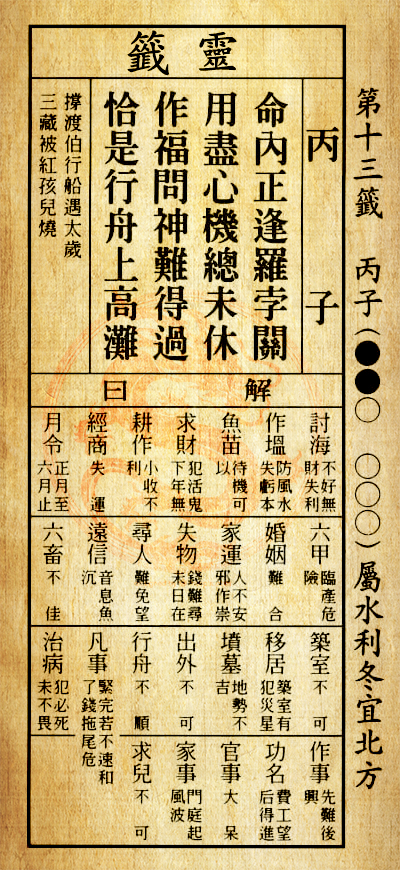 第十三籤 丙子(●●○ ○○○)屬水利冬宜北方
靈籤
丙子
命內正逢羅孛關
用盡心機總未休
作福問神難得過
恰是行舟上高灘
撐渡伯行船遇太歲
三藏被紅孩兒燒
解曰
討海 不好無財失利
作塭 防風水失虧本
魚苗 待機可以
求財 犯活鬼下年無
耕作 小收不利
經商 失運
月令 正月至六月止
六甲 臨產危險
婚姻 難合
家運 人不安邪作崇
失物 錢難尋未日在
尋人 難免望
遠信 音息魚沉
六畜 不佳
築室 不可
移居 築室有犯災星
墳墓 地勢不吉
出外 不可
行舟 不順
凡事 緊完若不速和了錢拖尾危
治病 犯必死未不畏
作事 先難後興
功名 費工望后得進
官事 大呆
家事 門庭起風波
求兒 不可